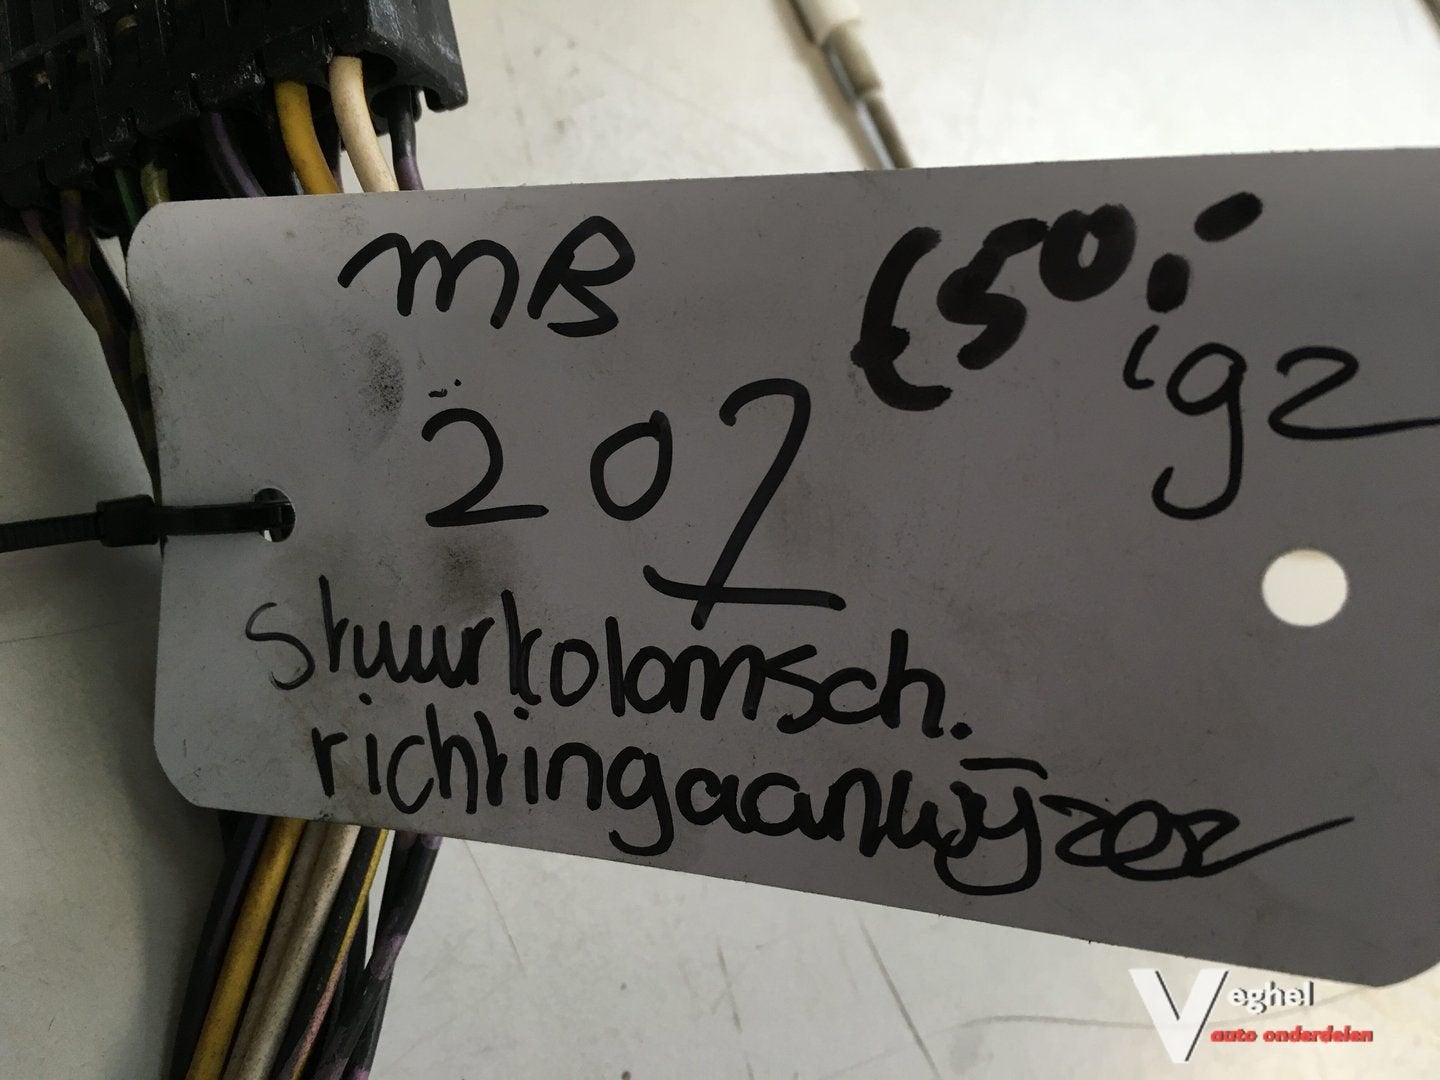 MB
€50,-
igz
207
stuurkolomsch.
richtingaanwijzer
Veghel
auto onderdelen